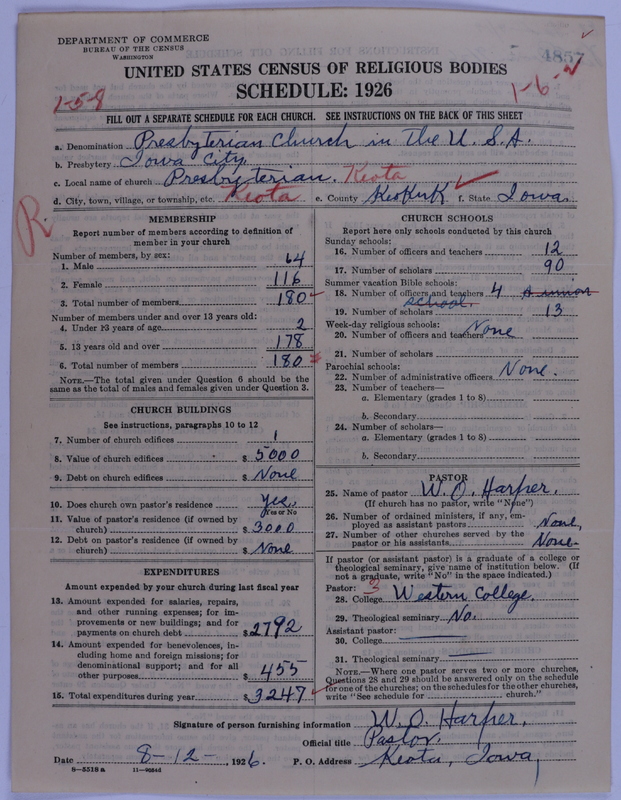 DEPARTMENT OF COMMERCE
BUREAU OF THE CENSUS
WASHINGTON
4857
UNITED STATES CENSUS OF RELIGIOUS BODIES
SCHEDULE: 1926
1-5-8
1-6-
FILL OUT A SEPARATE SCHEDULE FOR EACH CHURCH. SEE INSTRUCTIONS ON THE BACK OF THIS SHEET
a. Denomination Presbyterian Church in the U.S.A.
b. Presbytery Iowa City.
c. Local name of church Presbyterian. Keota
d. City, town, village, or township, etc. Keota e. County Keokuk f. State Iowa.
R
MEMBERSHIP
Report number of members according to definition of member in your church
Number of members, by sex:
1. Male 64
2. Female 116
3. Total number of members 180
Number of members under and over 13 years old:
4. Under 13 years of age 2
5. 13 years old and over 178
6. Total number of members 180
NOTE.—The total given under Question 6 should be the
same as the total of males and females given under Question 3.
CHURCH BUILDINGS
See instructions, paragraphs 10 to 12
7. Number of church edifices 1
8. Value of church edifices $ 5000
9. Debt on church edifices $ None
10. Does church own pastor's residence Yes.
(Yes or No)
11. Value of pastor's residence (if owned by
church) $ 3000
12. Debt on pastor's residence (if owned by
church) $ None
EXPENDITURES
Amount expended by your church during last fiscal year
13. Amount expended for salaries, repairs,
and other running expenses; for im-
provements or new buildings; and for
payments on church debt $ 2792
14. Amount expended for benevolences, in-
cluding home and foreign missions; for
denominational support; and for all
other purposes $ 455
15. Total expenditures during year $ 3247
CHURCH SCHOOLS
Report here only schools conducted by this church
Sunday schools:
16. Number of officers and teachers 12
17. Number of scholars 90
Summer vacation Bible schools:
18. Number of officers and teachers 4 A union
school.
19. Number of scholars 13
Week-day religious schools:
20. Number of officers and teachers None
21. Number of scholars
Parochial schools:
22. Number of administrative officers None.
23. Number of teachers—
a. Elementary (grades 1 to 8)
b. Secondary
24. Number of scholars—
a. Elementary (grades 1 to 8)
b. Secondary
PASTOR
25. Name of pastor W. O. Harper.
(If church has no pastor, write "None")
26. Number of ordained ministers, if any, em-
ployed as assistant pastors None,
27. Number of other churches served by the
pastor or his assistants None-
If pastor (or assistant pastor) is a graduate of a college or
theological seminary, give name of institution below. (If
not a graduate, write "No" in the space indicated.)
Pastor: 3
28. College Western College.
29. Theological seminary No.
Assistant pastor:
30. College
31. Theological seminary
NOTE.—Where one pastor serves two or more churches,
Questions 28 and 29 should be answered only on the schedule
for one of the churches; on the schedules for the other churches,
write "See schedule for church."
Signature of person furnishing information W. O. Harper,
Official title Pastor,
Date 8-12-, 1926. P. O. Address Keota, Iowa,
8-5518 a